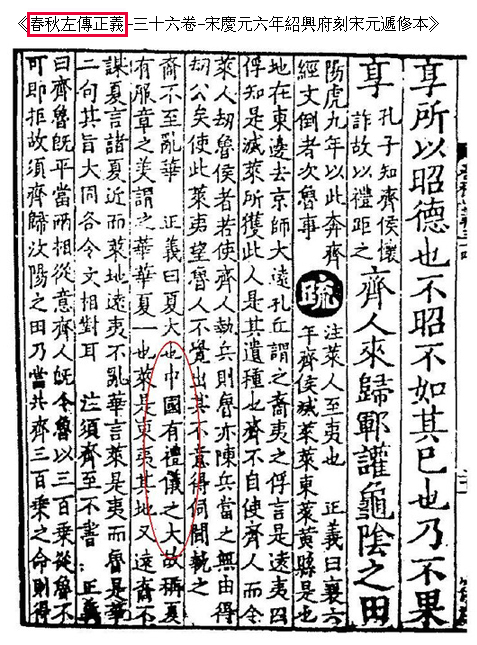 《春秋左傳正義-三十六卷-宋慶元六年紹興府刻宋元遞修本》
享所以昭德也不昭不如其已也乃不果
享 孔子知齊侯懷
詐故以禮距之
齊人來歸鄆讙龜陰之田
陽虎九年以此奔齊
經文倒者次魯事
疏
注萊人至夷也 正義曰襄六
年齊侯滅萊萊東萊黃縣是也
地在東邊去京師大遠孔丘謂之裔夷之俘言是遠夷囚
俘知是滅萊所獲此人是其遺種也齊不自使齊人而令
萊人劫魯侯者若使齊人執兵則魯亦陳兵當之無由得
劫公矣使此萊夷望魯人不覺出其不意得伺間執之
裔不至亂華 正義曰夏大也中國有禮儀之大故稱夏
有服章之美謂之華華夏一也萊是東夷其地又遠裔不
謀夏言諸夏近而萊地遠夷不亂華言萊是夷而魯是華
二句其旨大同各令文相對耳 注須齊至不書 正義
曰齊魯既平當兩相從意齊人既令魯以三百乘從魯不
可即拒故須齊歸汶陽之田乃當共齊三百乘之命則得